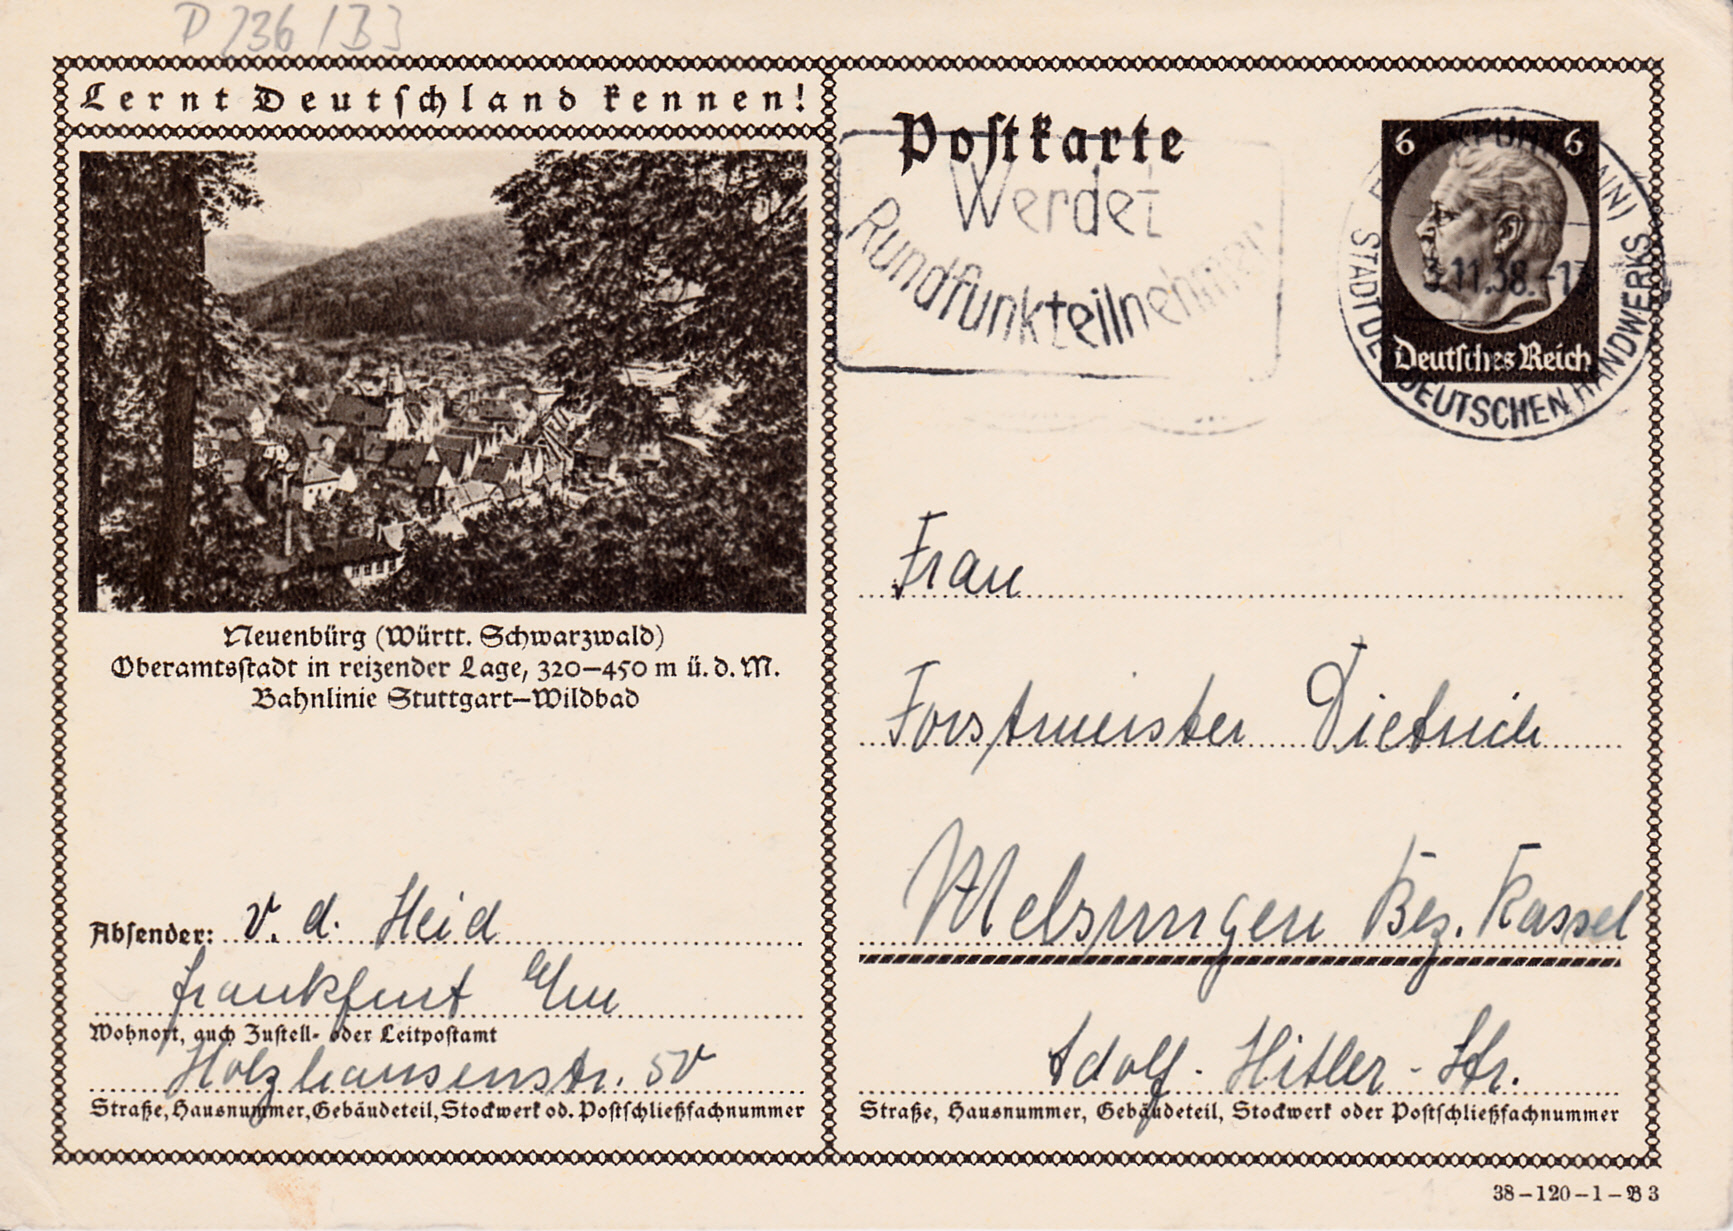 P 236 / B3
Lernt Deutschland kennen!
Neuenbürg (Württ. Schwarzwald)
Oberamtsstadt in reizender Lage, 320–450 m ü. d. M.
Bahnlinie Stuttgart–Wildbad
Absender: v. d. Heid
Frankfurt a/m
Wohnort, auch Zustell- oder Leitpostamt
Holzhausenstr.
Straße, Hausnummer, Gebäudeteil, Stockwerk od. Postschließfachnummer
Postkarte
Werdet
Rundfunkteilnehmer
6 6
Deutsches Reich
11.38.-13
STADT DES DEUTSCHEN HANDWERKS
Frau
Forstmeister Dietrich
Melsungen Bez. Kassel
Adolf-Hitler-Str.
Straße, Hausnummer, Gebäudeteil, Stockwerk oder Postschließfachnummer
38–120–1–B 3